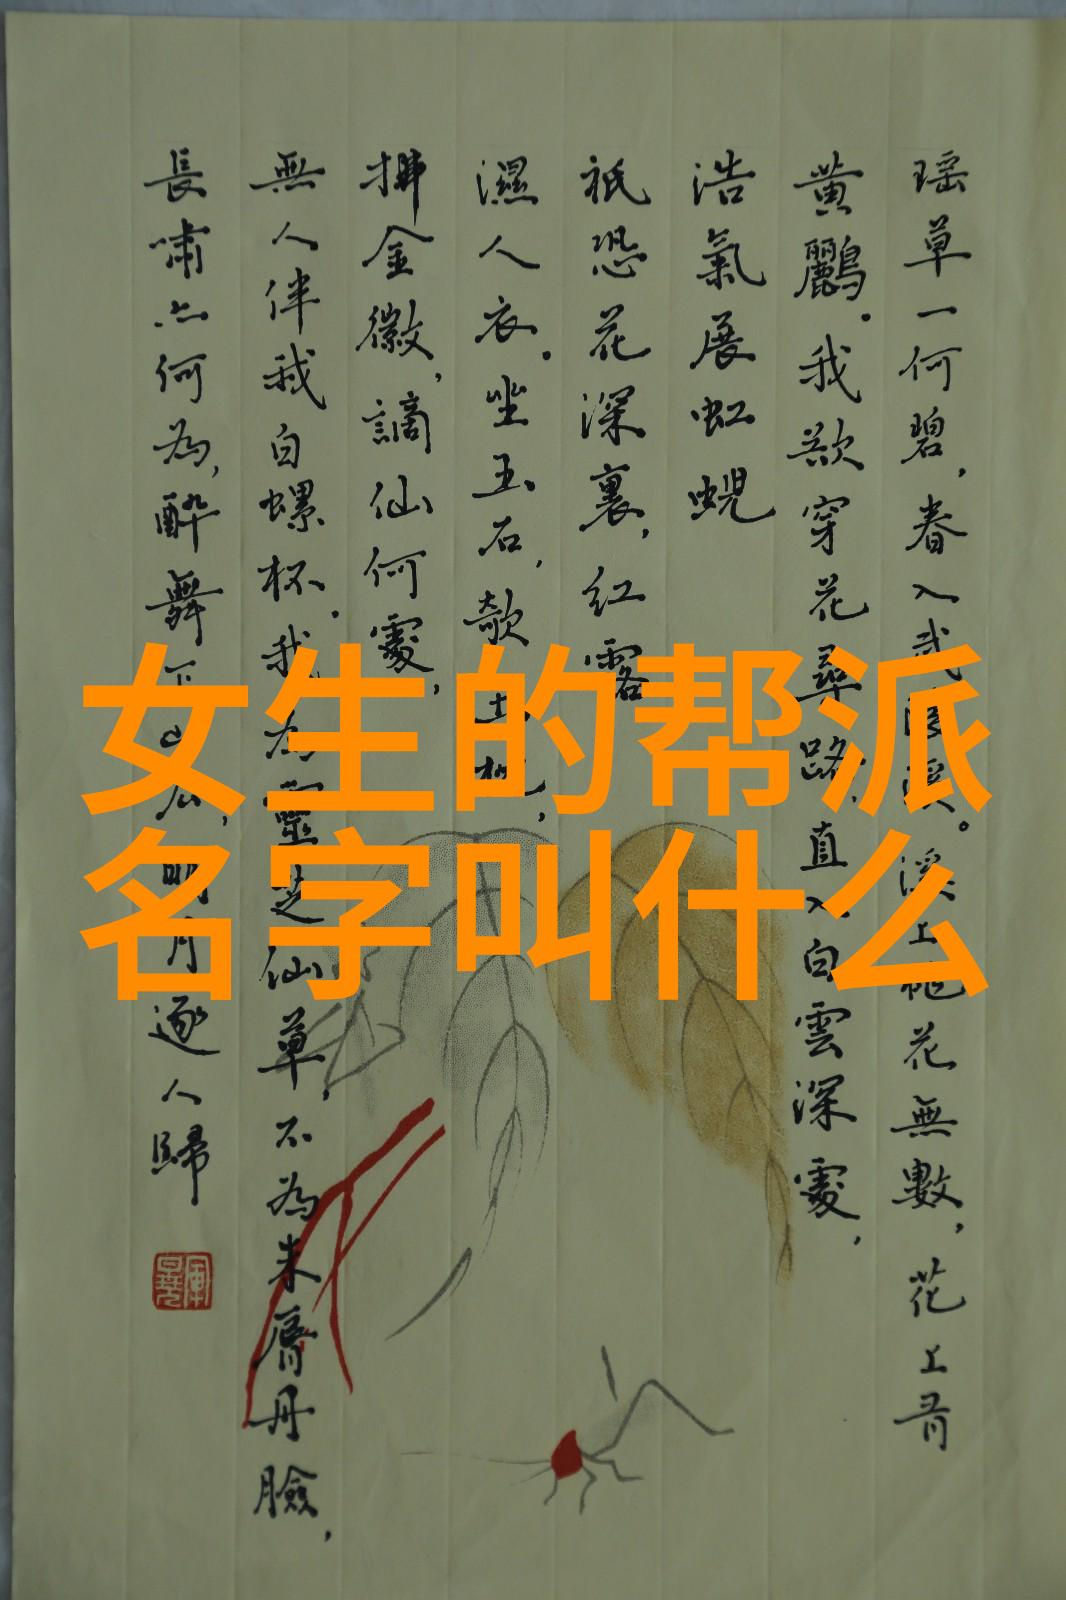 瑶草一何碧，春入武陵溪。溪上桃花無數，花上有
黄鸝。我欲穿花尋路，直入白雲深處，
浩氣展虹蜺
祇恐花深裏，红露
濕人衣。坐玉石，欹玉枕，
拂金徽，謫仙何處，
無人伴我白螺杯。我為靈芝仙草，不為朱唇丹臉，
長嘯亦何為，醉舞下山去，明月逐人歸
女生的帮派
名字叫什么